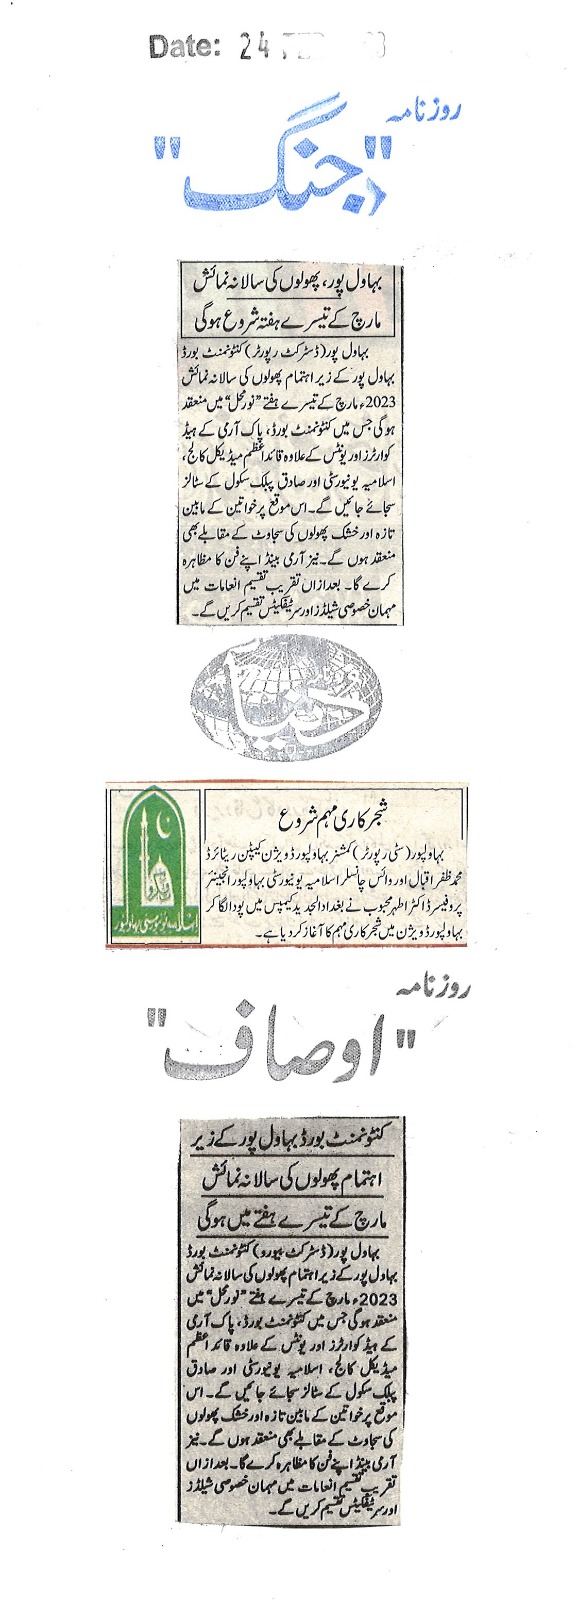 Date: 24
روزنامہ
"جنگ"
بہاول پور، پھولوں کی سالانہ نمائش
مارچ کے تیسرے ہفتہ شروع ہوگی
بہاول پور (ڈسٹرکٹ رپورٹر) کنٹونمنٹ بورڈ
بہاول پور کے زیر اہتمام پھولوں کی سالانہ نمائش
2023ء مارچ کے تیسرے ہفتے "نور محل" میں منعقد
ہوگی جس میں کنٹونمنٹ بورڈ، پاک آرمی کے ہیڈ
کوارٹرز اور یونٹس کے علاوہ قائد اعظم میڈیکل کالج،
اسلامیہ یونیورسٹی اور صادق پبلک سکول کے سٹالز
سجائے جائیں گے۔ اس موقع پر خواتین کے مابین
تازہ اور خشک پھولوں کی سجاوٹ کے مقابلے بھی
منعقد ہوں گے۔ نیز آرمی بینڈ اپنے فن کا مظاہرہ
کرے گا۔ بعد ازاں تقریب تقسیم انعامات میں
مہمان خصوصی شیلڈز اور سرٹیفکیٹس تقسیم کریں گے۔
دنیا
شجرکاری مہم شروع
بہاولپور (سٹی رپورٹر) کمشنر بہاولپور ڈویژن کیپٹن ریٹائرڈ
محمد ظفر اقبال اور وائس چانسلر اسلامیہ یونیورسٹی بہاولپور انجینئر
پروفیسر ڈاکٹر اطہر محبوب نے بغداد الجدید کیمپس میں پودا لگا کر
بہاولپور ڈویژن میں شجرکاری مہم کا آغاز کر دیا ہے۔
اسلامیہ یونیورسٹی بہاولپور
روزنامہ
"اوصاف"
کنٹونمنٹ بورڈ بہاول پور کے زیر
اہتمام پھولوں کی سالانہ نمائش
مارچ کے تیسرے ہفتے میں ہوگی
بہاول پور (ڈسٹرکٹ بیورو) کنٹونمنٹ بورڈ
بہاول پور کے زیر اہتمام پھولوں کی سالانہ نمائش
2023ء مارچ کے تیسرے ہفتے "نور محل" میں
منعقد ہوگی جس میں کنٹونمنٹ بورڈ، پاک آرمی
کے ہیڈ کوارٹرز اور یونٹس کے علاوہ قائد اعظم
میڈیکل کالج، اسلامیہ یونیورسٹی اور صادق
پبلک سکول کے سٹالز سجائے جائیں گے۔ اس
موقع پر خواتین کے مابین تازہ اور خشک پھولوں
کی سجاوٹ کے مقابلے بھی منعقد ہوں گے۔ نیز
آرمی بینڈ اپنے فن کا مظاہرہ کرے گا۔ بعد ازاں
تقریب تقسیم انعامات میں مہمان خصوصی شیلڈز
اور سرٹیفکیٹس تقسیم کریں گے۔